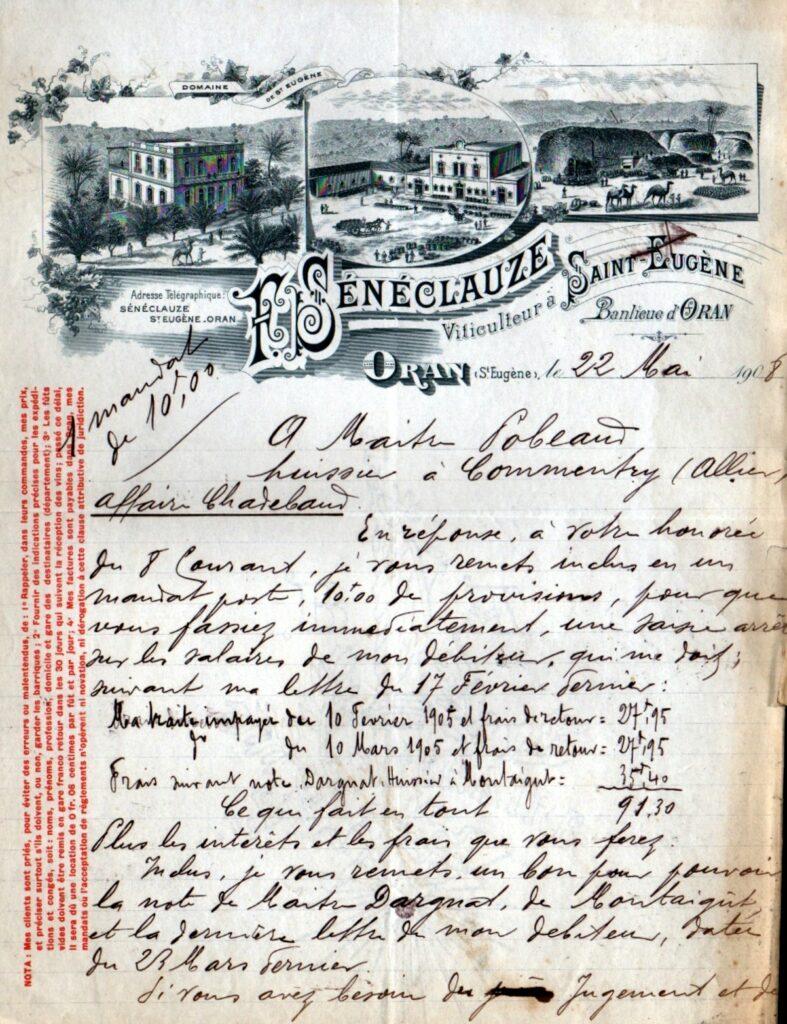 DOMAINE DE St EUGÈNE
Adresse Télégraphique:
SÉNÉCLAUZE
St EUGÈNE-ORAN
SÉNÉCLAUZE
Viticulteur à SAINT-EUGÈNE
Banlieue d'ORAN
ORAN (St Eugène), le 22 Mai 1908
1 mandat
de 10f,00
A Maitre Pobeaud
huissier à Commentry (Allier)
affaire Chadebaud
En réponse, à votre honorée
du 8 Courant, je vous remets inclus en un
mandat poste, 10f00 de provisions, pour que
vous fassiez immédiatement, une saisie arrêt
sur les salaires de mon débiteur, qui me doit,
suivant ma lettre du 17 Février dernier:
Ma traite impayée du 10 Fevrier 1905 et frais de retour = 27f,95
do du 10 Mars 1905 et frais de retour = 27f,95
Frais suivant note, Dargnat, Huissier à Montaigut = 35f,40
Ce qui fait en tout 91,30
Plus les interêts et les frais que vous ferez.
Inclus, je vous remets, un bon pour pouvoir
la note de Maitre Dargnat, de Montaigut,
et la dernière lettre de mon debiteur, datée
du 23 Mars dernier.
Si vous avez besoin du Jugement et de
NOTA: Mes clients sont priés, pour éviter des erreurs ou malentendus, de: 1° Rappeler, dans leurs commandes, mes prix,
et préciser surtout s'ils doivent, ou non, garder les barriques; 2° Fournir des indications précises pour les expédi-
tions et congés, soit: noms, prénoms, profession, domicile et gare des destinataires (département); 3° Les fûts
vides doivent être remis en gare franco retour dans les 30 jours qui suivent la réception des vins; passé ce délai,
il sera dû une location de 0 fr. 06 centimes par fût et par jour; 4° Mes factures sont payables dans Oran, mes
mandats ou l'acceptation de règlements n'opèrent ni novation, ni dérogation à cette clause attributive de juridiction.